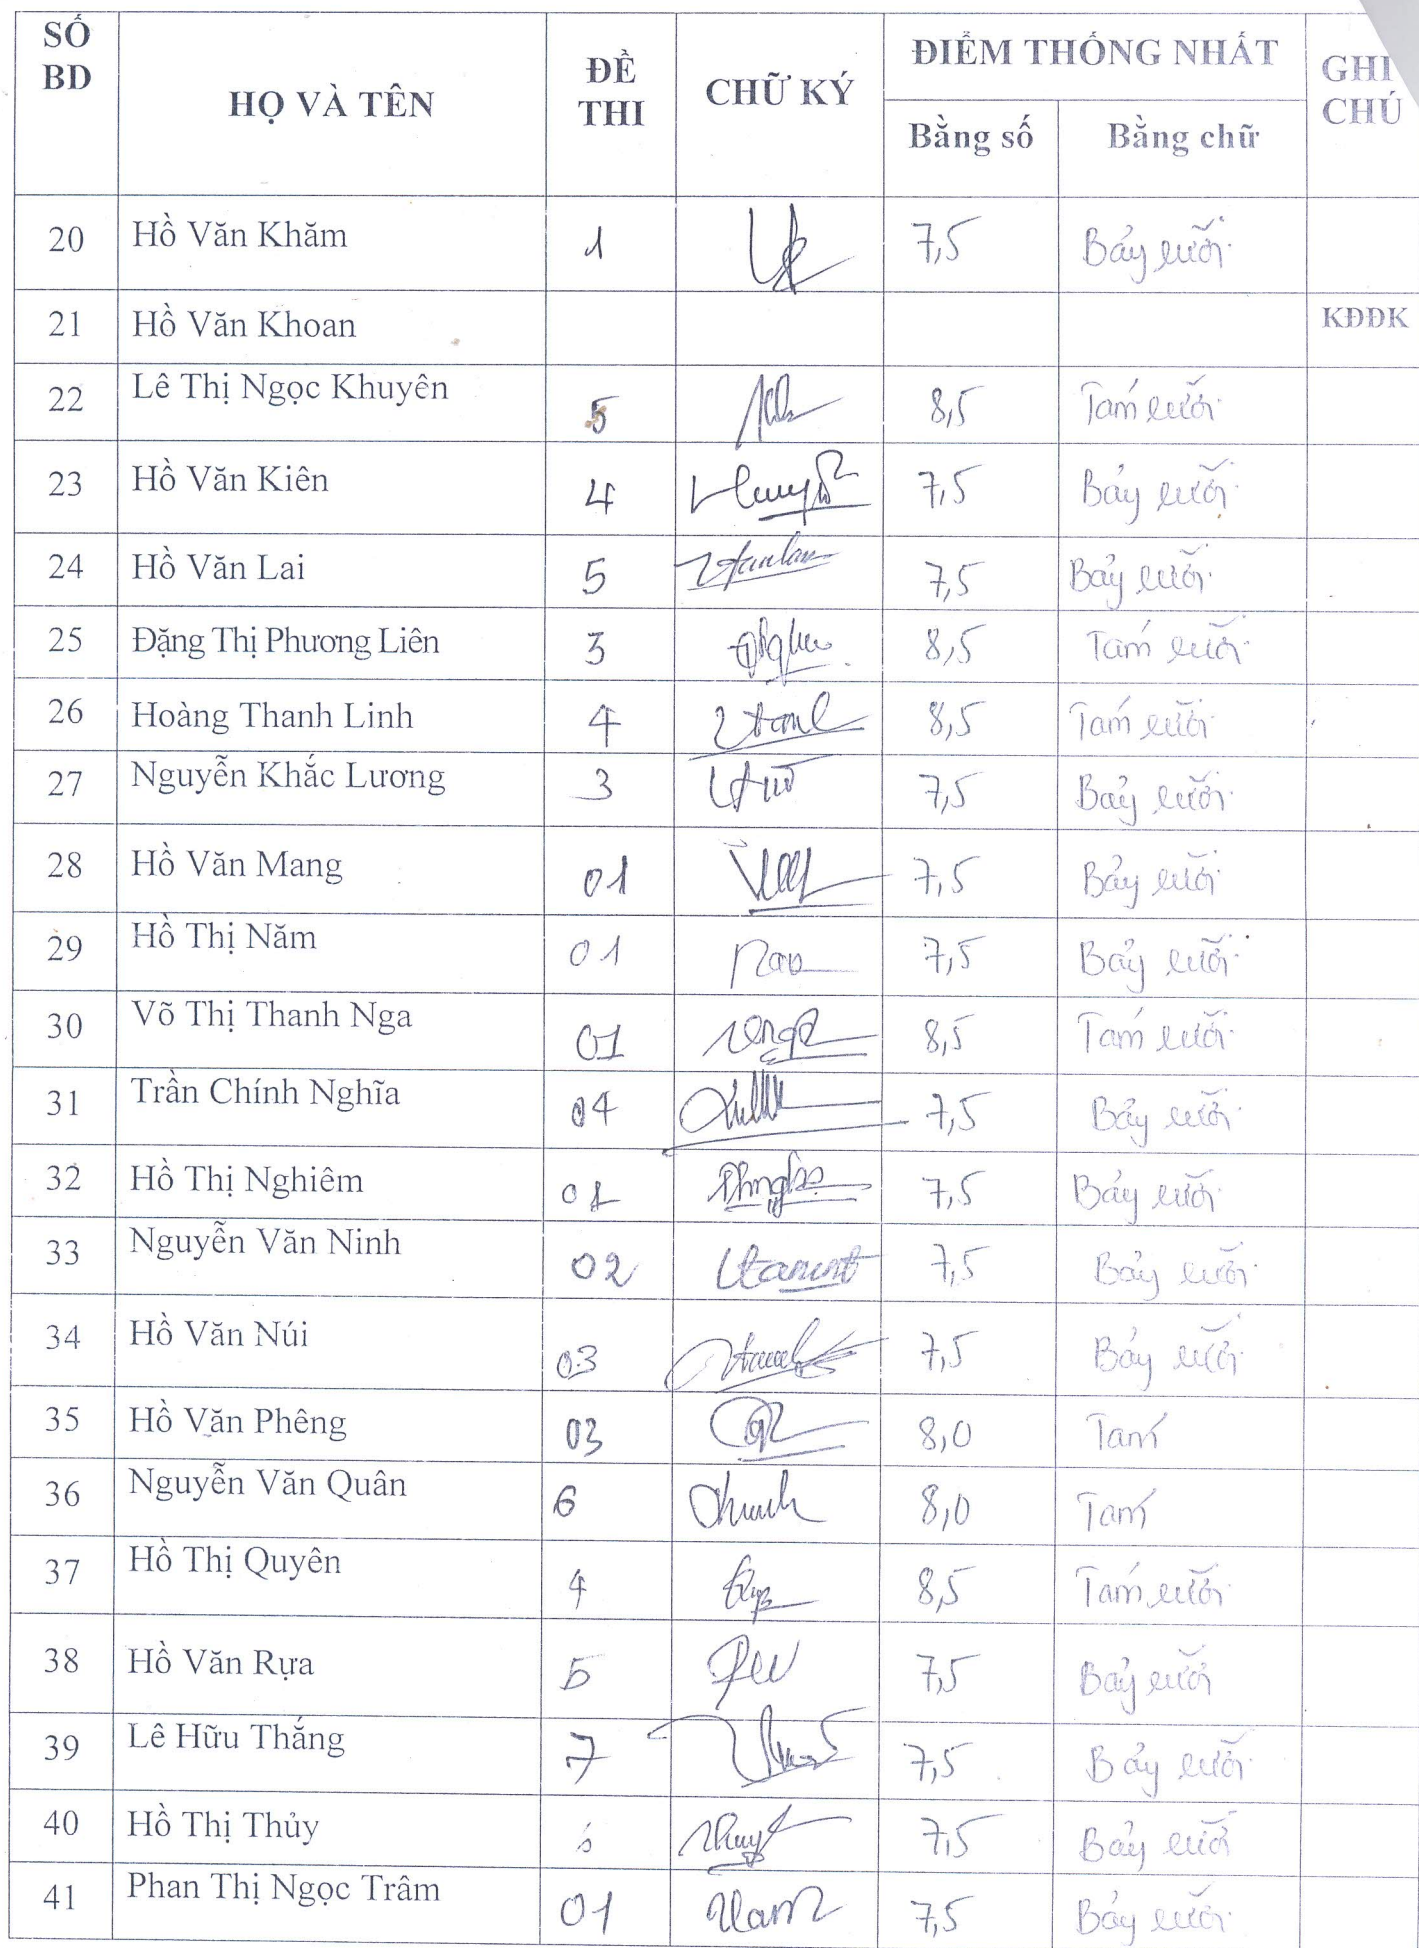 SỐ BD HỌ VÀ TÊN ĐỀ THI CHỮ KÝ ĐIỂM THỐNG NHẤT GHI CHÚ
Bằng số Bằng chữ
20 Hồ Văn Khăm 1 7,5 Bảy rưỡi
21 Hồ Văn Khoan KĐĐK
22 Lê Thị Ngọc Khuyên 5 8,5 Tám rưỡi
23 Hồ Văn Kiên 4 7,5 Bảy rưỡi
24 Hồ Văn Lai 5 7,5 Bảy rưỡi
25 Đặng Thị Phương Liên 3 8,5 Tám rưỡi
26 Hoàng Thanh Linh 4 8,5 Tám rưỡi
27 Nguyễn Khắc Lương 3 7,5 Bảy rưỡi
28 Hồ Văn Mang 01 7,5 Bảy rưỡi
29 Hồ Thị Năm 01 7,5 Bảy rưỡi
30 Võ Thị Thanh Nga 01 8,5 Tám rưỡi
31 Trần Chính Nghĩa 04 7,5 Bảy rưỡi
32 Hồ Thị Nghiêm 7,5 Bảy rưỡi
33 Nguyễn Văn Ninh 02 7,5 Bảy rưỡi
34 Hồ Văn Núi 03 7,5 Bảy rưỡi
35 Hồ Văn Phêng 03 8,0 Tám
36 Nguyễn Văn Quân 6 8,0 Tám
37 Hồ Thị Quyên 4 8,5 Tám rưỡi
38 Hồ Văn Rựa 5 7,5 Bảy rưỡi
39 Lê Hữu Thắng 7 7,5 Bảy rưỡi
40 Hồ Thị Thủy 7,5 Bảy rưỡi
41 Phan Thị Ngọc Trâm 01 7,5 Bảy rưỡi